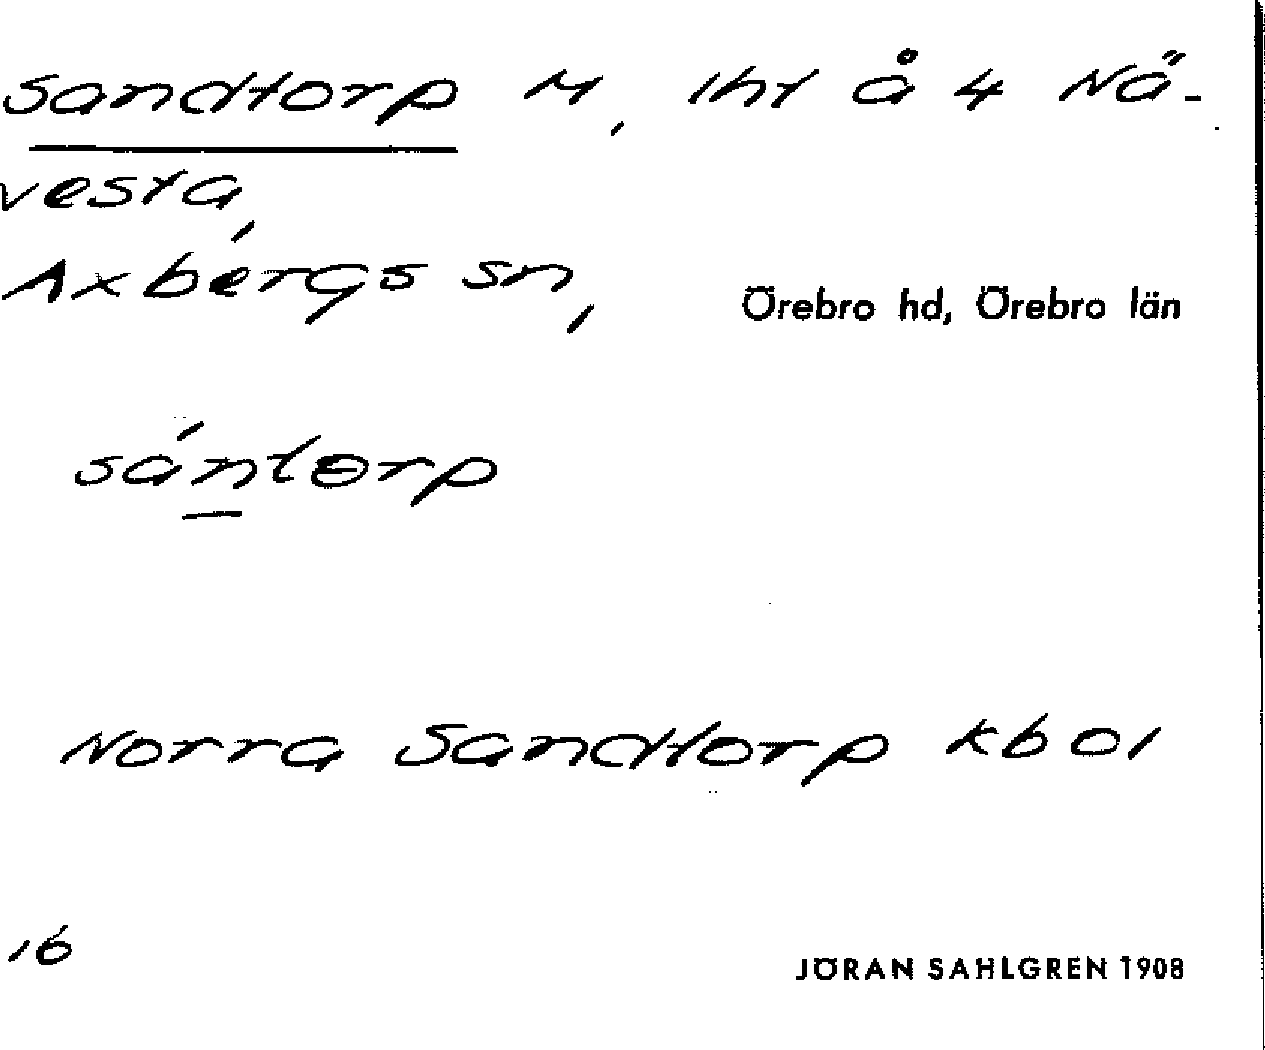 Sandtorp N, lht å 4 Nä-
vesta,
Axbergs sn,
Örebro hd, Örebro län
sántorp
Norra Sandtorp kb 01
16
JÖRAN SAHLGREN 1908